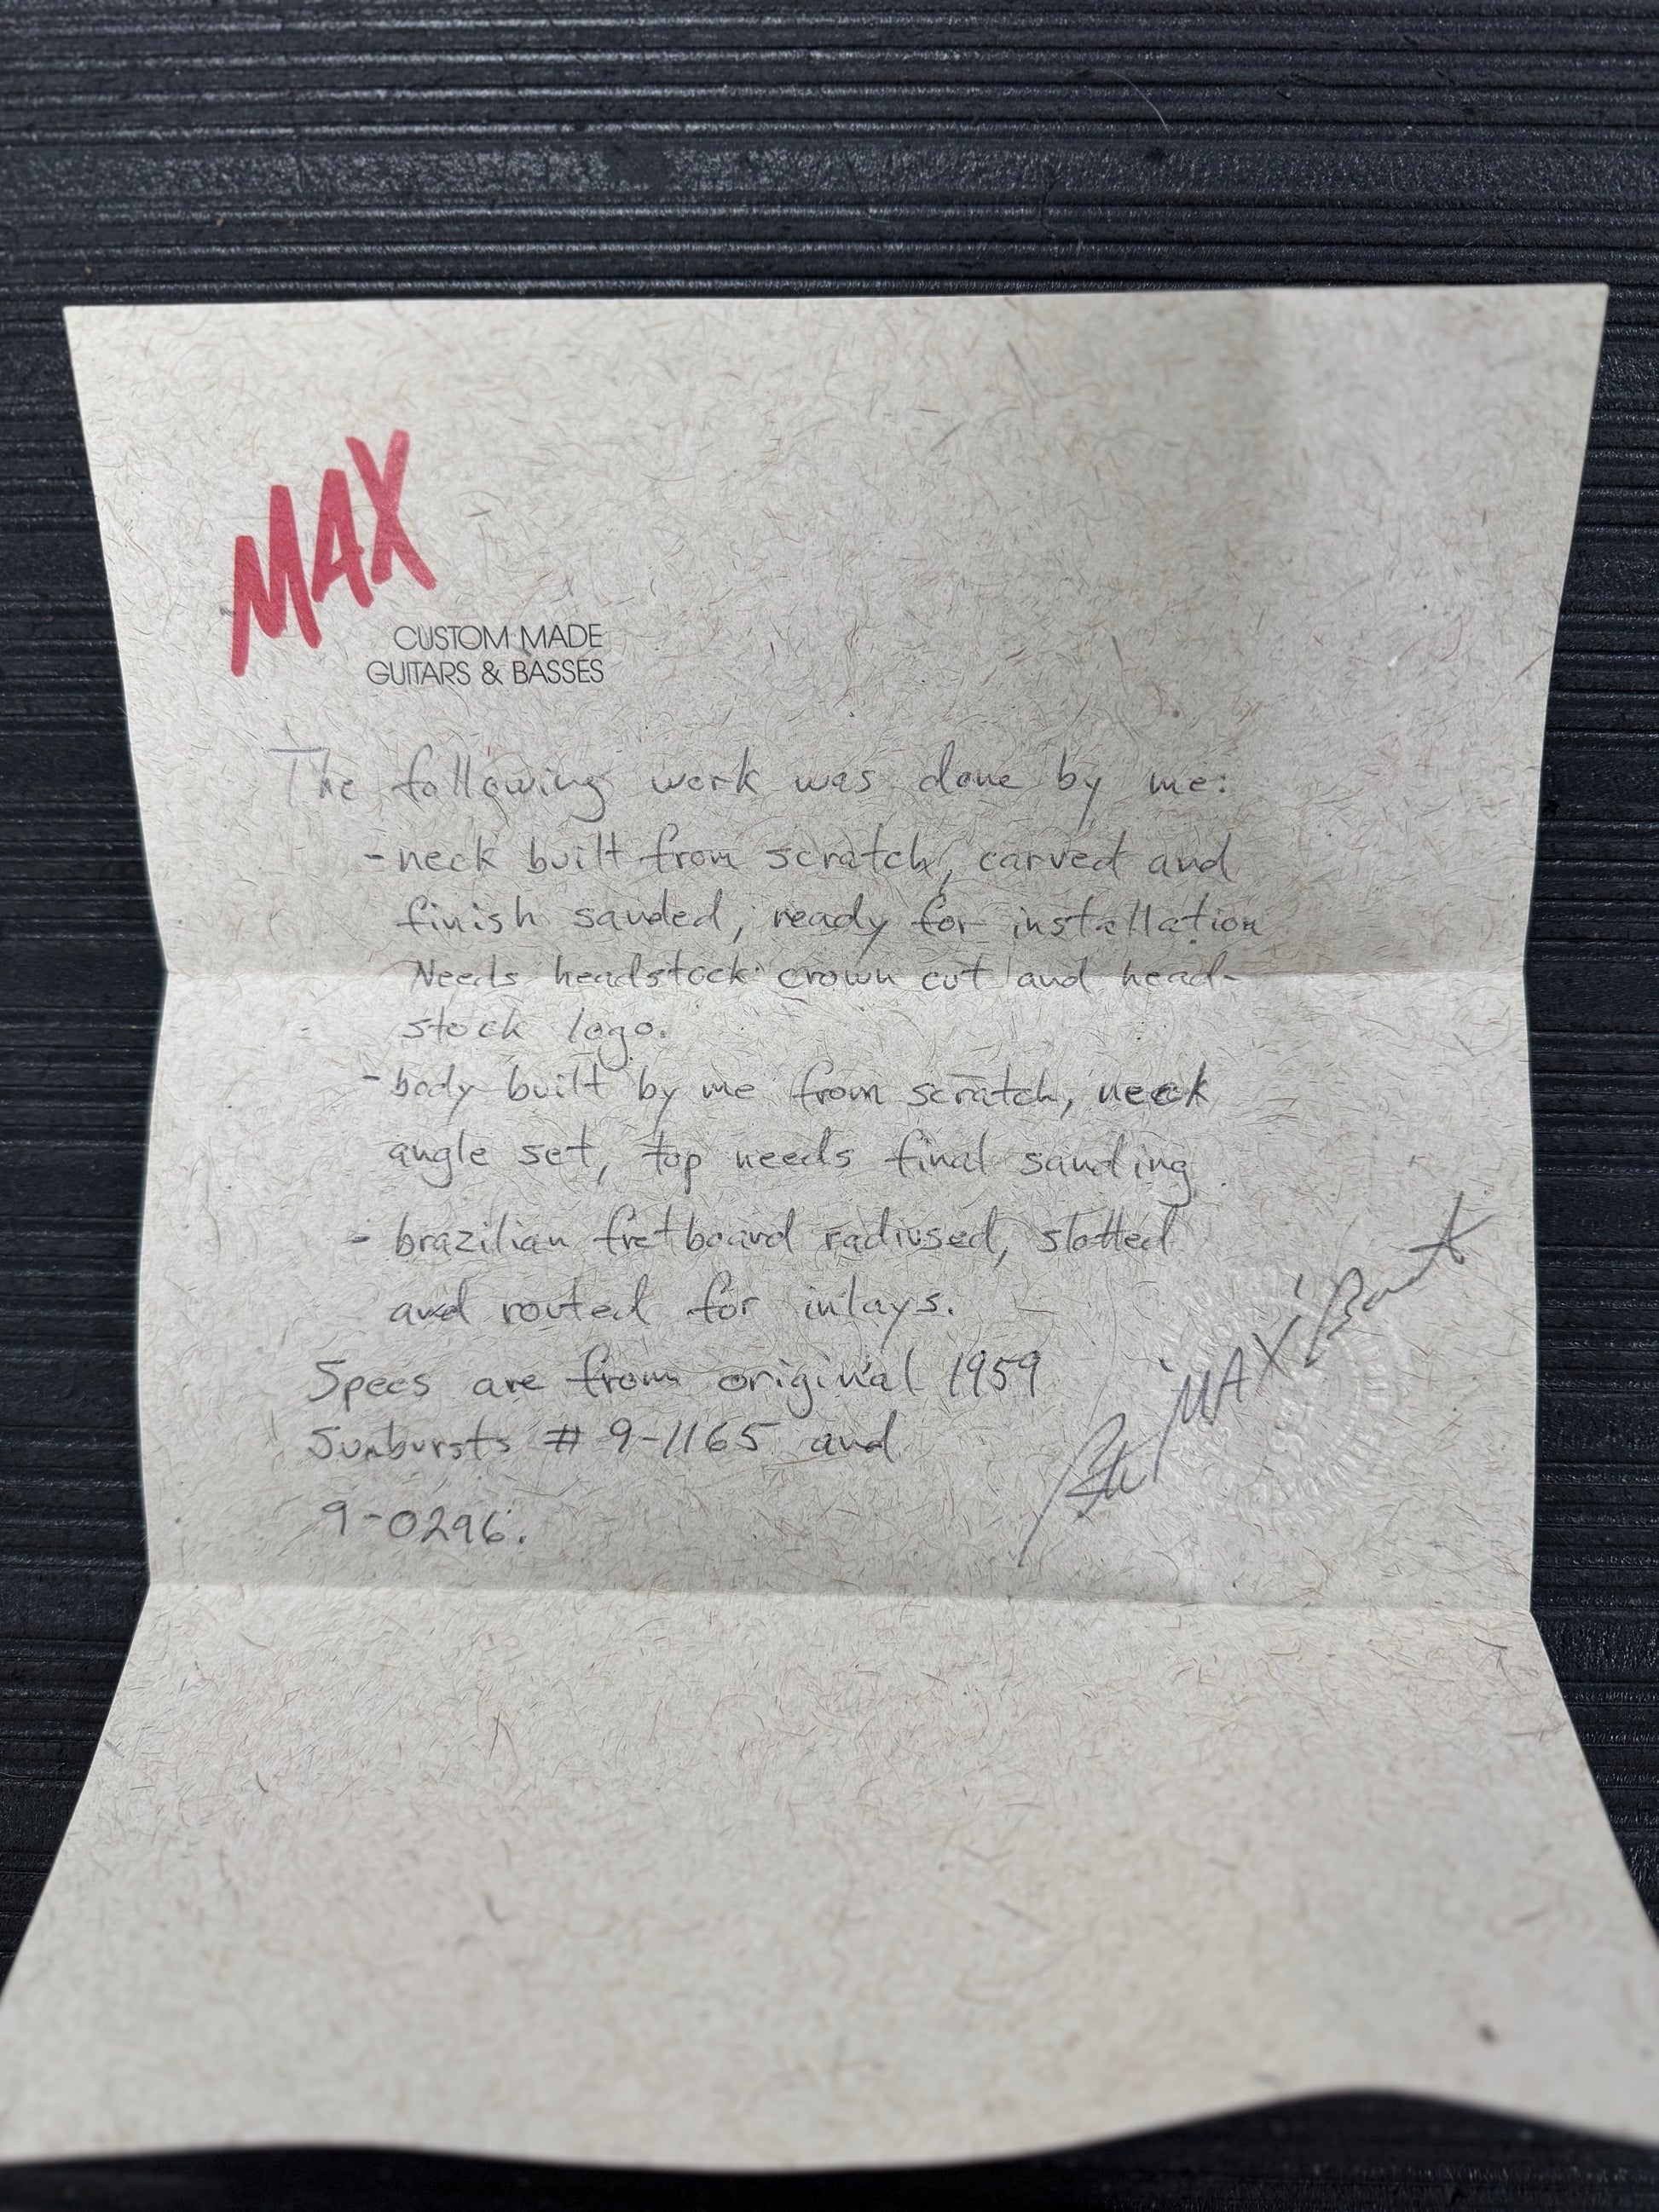 MAX
CUSTOM MADE
GUITARS & BASSES
The following work was done by me:
- neck built from scratch, carved and
finish sanded, ready for installation
Needs headstock crown cut and head-
stock logo.
- body built by me from scratch, neck
angle set, top needs final sanding
- brazilian fretboard radiused, slotted
and routed for inlays.
Specs are from original 1959
Sunbursts # 9-1165 and
9-0296.
"MAX"